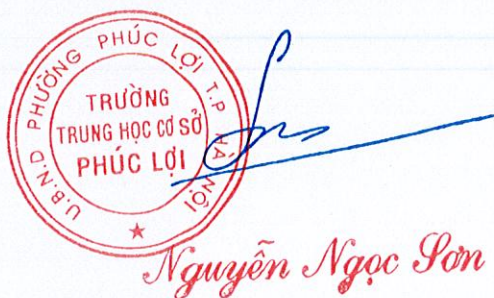 U.B.N.D PHƯỜNG PHÚC LỢI T.P HÀ NỘI
TRƯỜNG
TRUNG HỌC CƠ SỞ
PHÚC LỢI
Nguyễn Ngọc Sơn